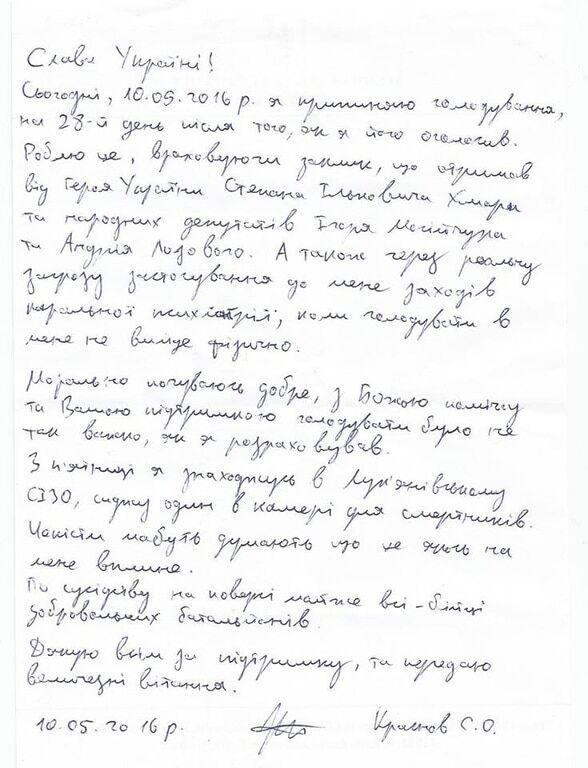 Слава Україні!
Сьогодні, 10.05.2016 р. я припиняю голодування,
на 28-й день після того, як я його оголосив.
Роблю це, враховуючи заклик, що отримав
від Героя України Степана Ільковича Хмари
та народних депутатів Ігоря Мосійчука
та Андрія Лозового. А також через реальну
загрозу застосування до мене заходів
каральної психіатрії, коли голодувати в
мене не вийде фізично.
Морально почуваюсь добре, з Божою поміччу
та Вашою підтримкою голодувати було не
так важко, як я розраховував.
З п'ятниці я знаходжусь в Лук'янівському
СІЗО, сиджу один в камері для смертників.
Чекісти мабуть думають що це якось на
мене вплине.
По сусідству на поверсі майже всі - бійці
добровольчих батальйонів.
Дякую всім за підтримку, та передаю
величезні вітання.
10.05.2016 р. Краснов С.О.